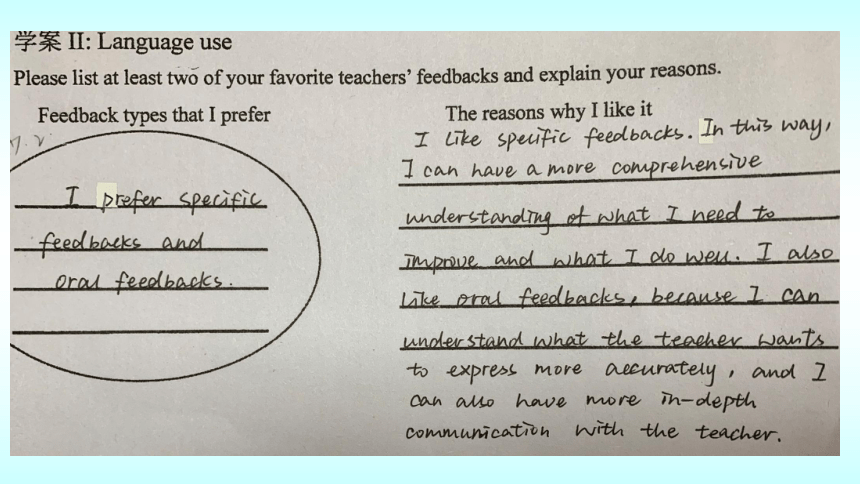 学案 II: Language use
Please list at least two of your favorite teachers' feedbacks and explain your reasons.
Feedback types that I prefer
I prefer specific
feedbacks and
oral feedbacks.
The reasons why I like it
I like specific feedbacks. In this way,
I can have a more comprehensive
understanding of what I need to
improve and what I do well. I also
like oral feedbacks, because I can
understand what the teacher wants
to express more accurately, and I
can also have more in-depth
communication with the teacher.